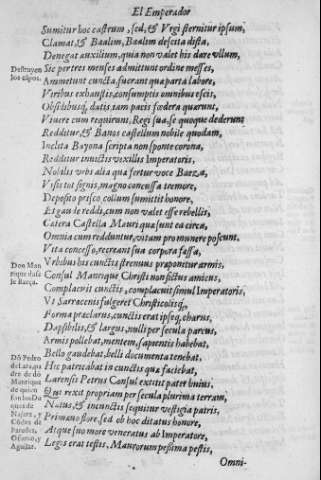 El Emperador
Sumitur hoc castrum, sed, & Vrgi sternitur ipsum,
Clamat, & Baalim, Baalim descita dista,
Denegat auxilium, quia non valet his dare vllum,
Destruyen los cāpos.
Sic per tres menses admittunt ordine messes,
Ammetunt cuncta, fuerant qua parta labore,
Viribus exhaustis, consumptis omnibus escis,
Obsidibusq́, datis, tam pacis fœdera quærunt,
Viuere cum requirunt, Regi sua se quoque dederunt
Redditur, & Banos castellum nobile quodam,
Inclita Bayona scripta non sponte corona,
Redditur inuictis vexillis Imperatoris,
Nobilis vrbs alia qua fertur voce Baeza,
Visis tot signis, magno concussa tremore,
Deposito prisco collum summittit honore,
Et gaudet reddi, cum non valet esse rebellis,
Cætera Castella Mauri qua sunt ea circa,
Omnia cum redduntur, vitam pro munere poscunt.
Vita concesso, recreant sua corpora fassa,
Don Manrique da se le Baeça.
Vrbibus his cunctis strenuus præponitur armis,
Consul Manrique Christi non fictus amicus,
Complacuit cunctis, complacuit simul Imperatoris,
Vt Sarracenis fulgeret Christicolisq́,
Forma præclarus, cunctis erat ipseq́, charus,
Dapsibilis, & largus, nulli per secula parcus,
Armis pollebat, mentem, sapientis habebat,
Bello gaudebat, belli documenta tenebat,
Dō Pedro de Lara, padre de dō Manrique de quien son los Duques de Najara, y Cōdes de Paredes, Osorno, y Aguilar.
Hic patrizabat in cunctis qua faciebat,
Larensis Petrus Consul extitit pater huius,
Qui rexit propriam per secula plurima terram,
Natus, & in cunctis sequitur vestigia patris,
Primæuo flore, sed ob hoc ditatus honore,
Atque suo more veneratus ab Imperatore,
Legis erat testis, Maurorum pessima pestis,
Omni-